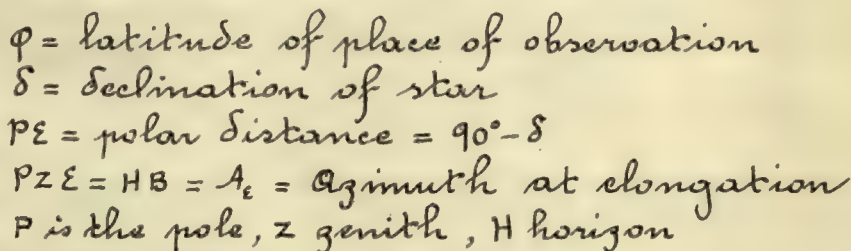 φ = latitude of place of observation
δ = declination of star
PE = polar distance = 90° - δ
PZE = HB = Aε = Azimuth at elongation
P is the pole, Z zenith, H horizon